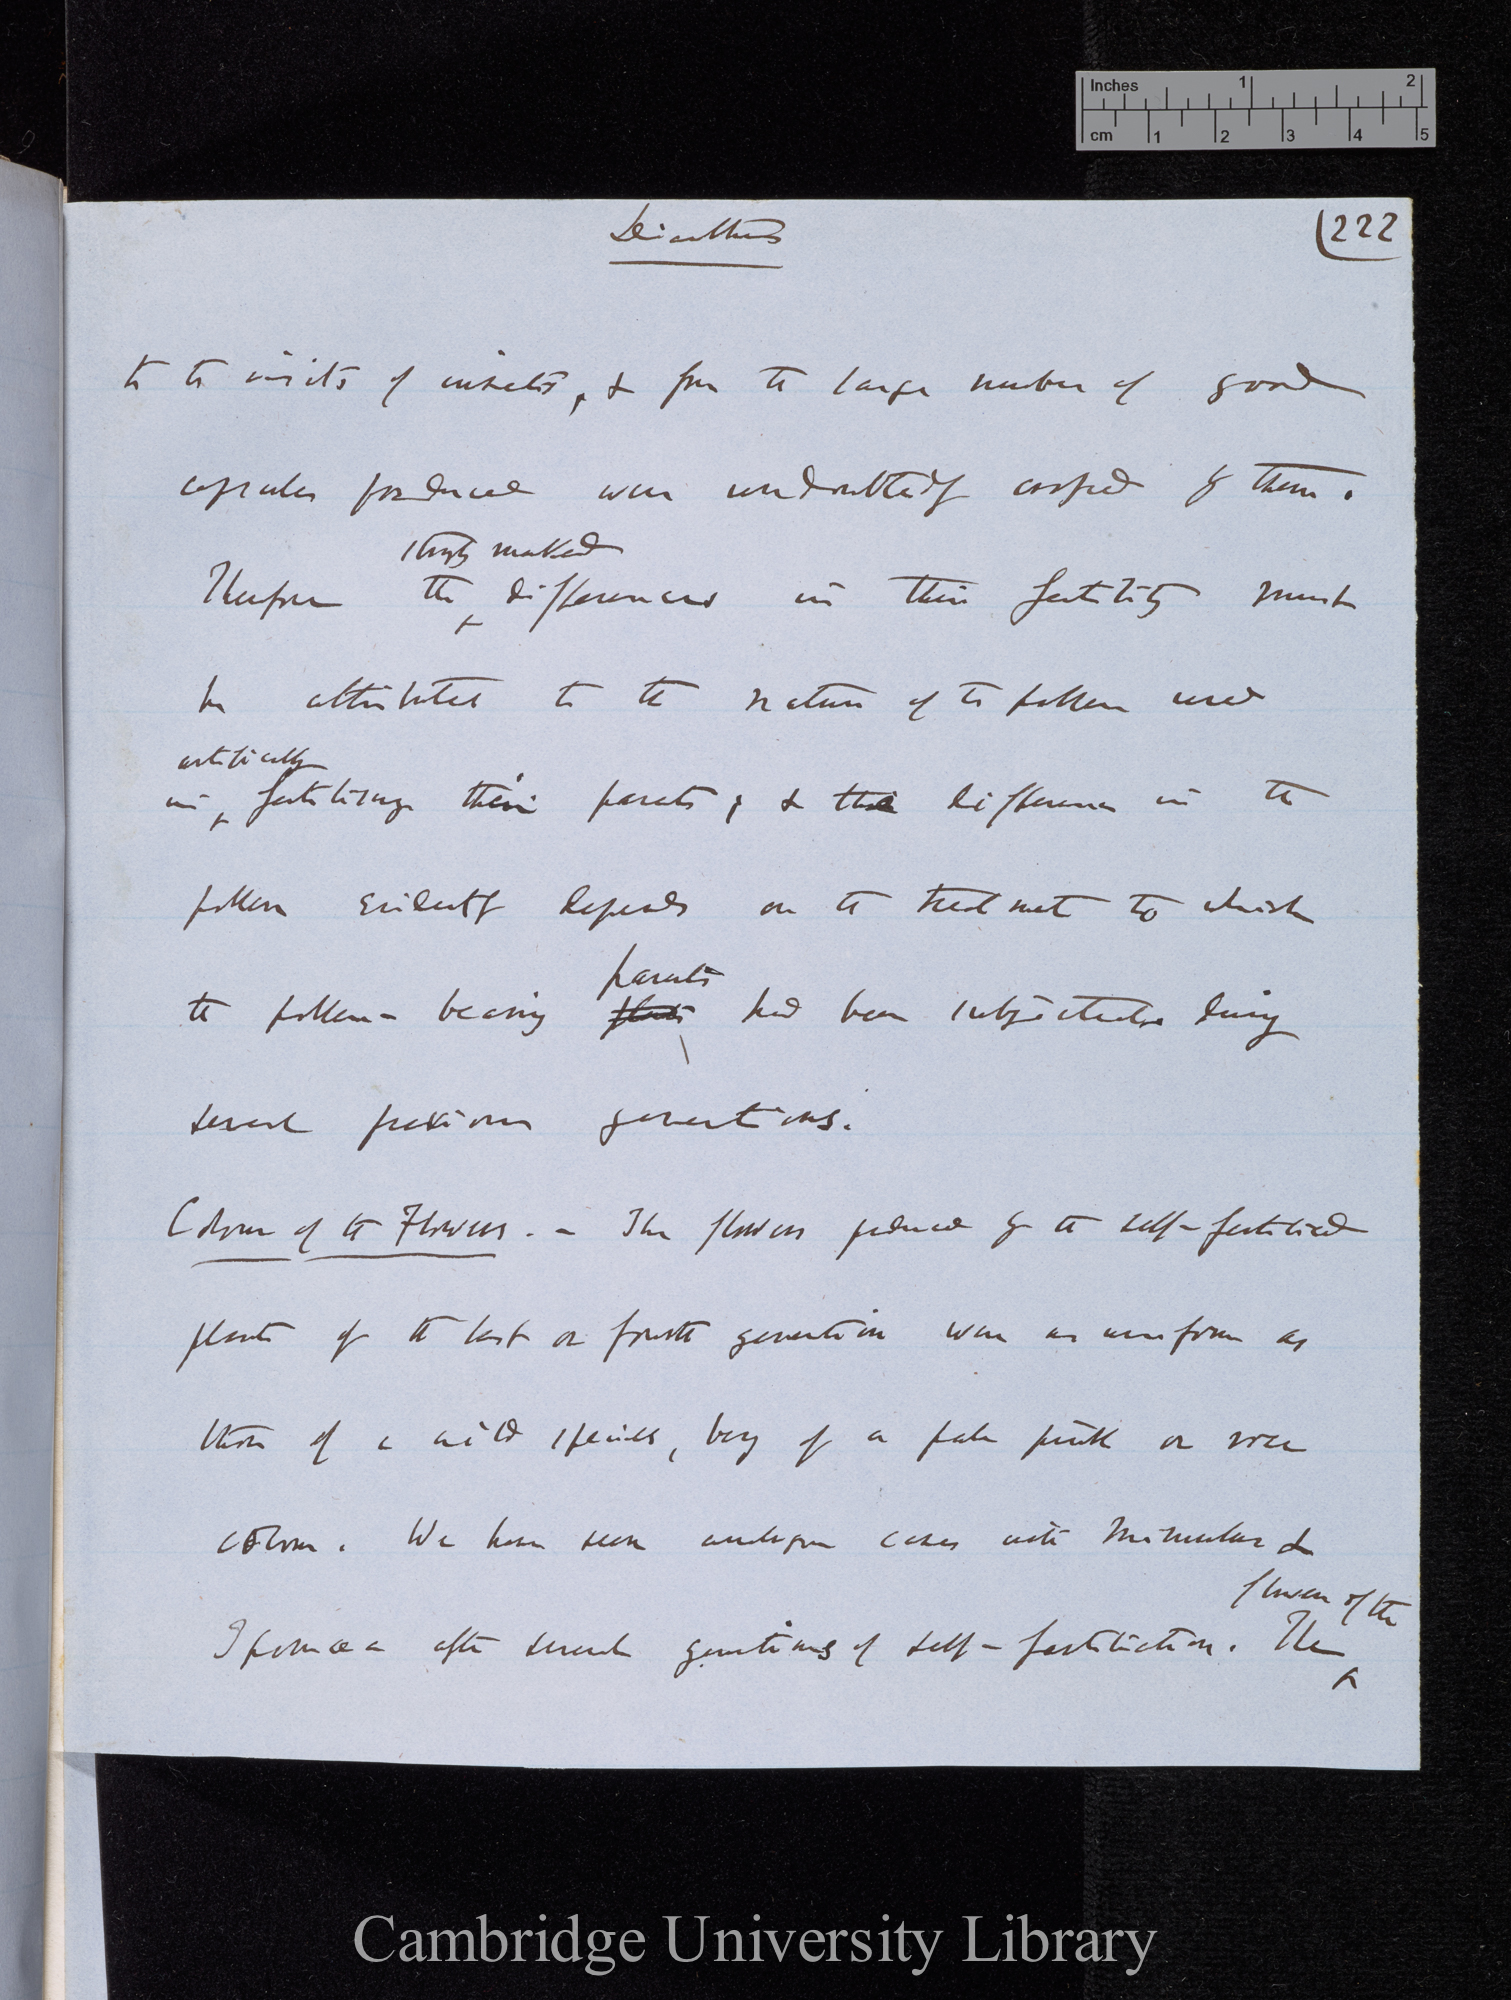 Inches 1 2
cm 1 2 3 4 5
Dianthus (222
to the visits of insects, & from the large number of good
capsules produced were undoubtedly crossed by them.
strongly marked
Therefore the differences in their fertility must
be attributed to the nature of the pollen used
artificially
in fertilising their parents; & the difference in the
pollen evidently depends on the treatment to which
parents
the pollen-bearing plants had been subjected during
several previous generations.
Colour of the Flowers. — The flowers produced by the self-fertilised
plants of the last or fourth generation were as uniform as
those of a wild species, being of a pale pink or rose
colour. We have seen analogous cases with Mimulus &
flowers of the
Ipomœa after several generations of self-fertilisation. The
Cambridge University Library